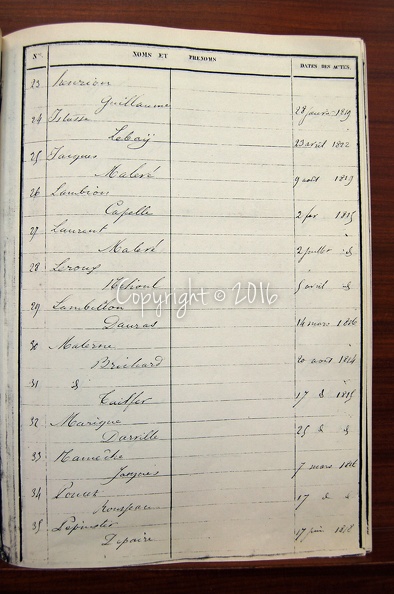 Nos NOMS ET PRENOMS DATES DES ACTES
23
Guillaume 28 janvr 1819
24
Leboÿ 23 avril 1822
25 Jacques
Maleré 9 août 1819
26 Lambion
Capelle 2 fev 1815
27 Laurent
Maleré 2 juillet id
28 Leroux
5 avril id
29 Lambillon
Dauras 14 mars 1816
30 Materne
Brichard 20 août 1814
31 id
17 d 1815
32 Marique
Darville 25 d d
33 Hamêche
Jacques 7 mars 1816
34
Rousseau 17 d d
35 Lepinster
Depaire 17 juin 1818
Copyright © 2016